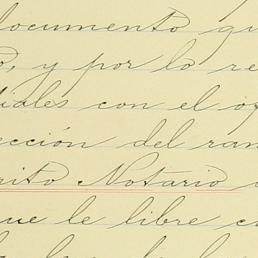 documento qu
, y por lo re
diales con el o
ección del ram
rito Notario
que le libre c